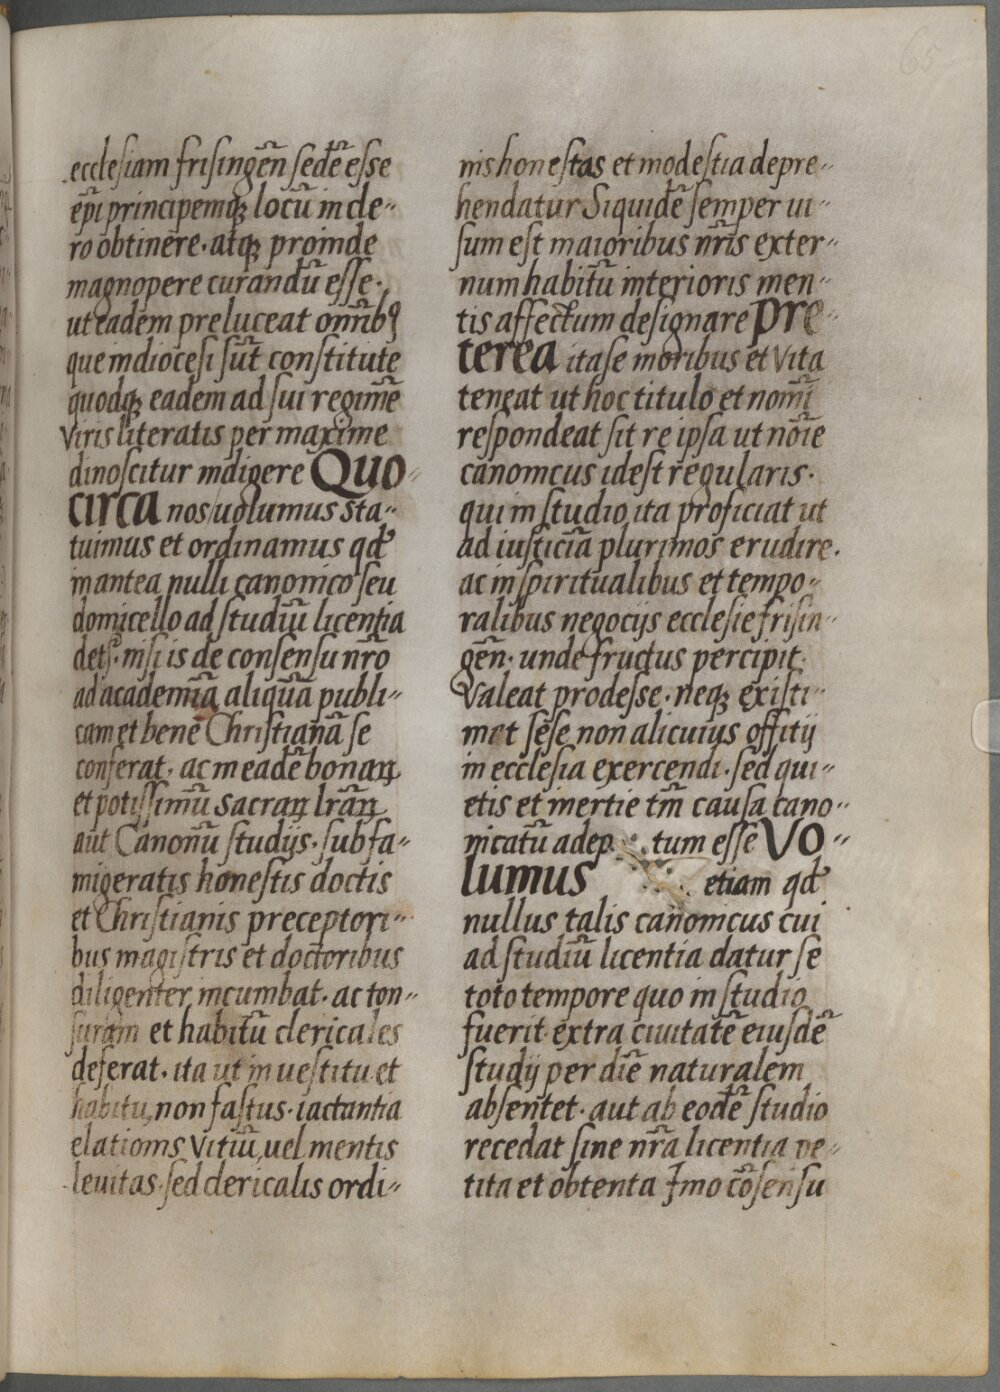 65
ecclesiam frisingen̄ sedē esse
ēpi principemqꝫ locū in cle-
ro obtinere. atqꝫ proinde
magnopere curandū esse.
ut eadem preluceat omnibꝰ
que in diocesi sūt constitute
quodqꝫ eadem ad sui regimē
viris literatis per maxime
dinoscitur indigere Quo-
circa nos uolumus sta-
tuimus et ordinamus qđ
in antea nulli canonico seu
domicello ad studiū licentia
detʳ. nisi is de consensu nr̄o
ad academiā aliquā publi-
cam et bene Christianā se
conferat. ac in eadē bonaꝝ
et potissimū sacraꝝ lr̄aꝝ
aut Canonū studijs. sub fa-
migeratis honestis doctis
et Christianis preceptori-
bus magistris et doctoribus
diligenter incumbat. ac ton-
suram et habitū clericales
deferat. ita ut in uestitu et
habitu, non fastus. iactantia
elationis vitiū, uel mentis
leuitas. sed clericalis ordi-
nis honestas et modestia depre-
hendatur Siquidē semper ui-
sum est maioribus nr̄is exter-
num habitū interioris men-
tis affectum designare Pre-
terea ita se moribus et vita
teneat ut hoc titulo et nomī
respondeat sit re ipsa ut nōie
canonicus id est regularis.
qui in studio ita proficiat ut
ad iusticiā plurimos erudire.
ac in spiritualibus et tempo-
ralibus negocijs ecclesie frisin-
gen̄. unde fructus percipit.
valeat prodesse. neqꝫ existi-
met sese non alicuius offitij
in ecclesia exercendi. sed qui-
etis et inertie tm̄ causa cano-
nicatū adep tum esse Vo-
lumus etiam qđ
nullus talis canonicus cui
ad studiū licentia datur se
toto tempore quo in studio
fuerit extra ciuitatē eiusdē
studij per diē naturalem
absentet. aut ab eodē studio
recedat sine nr̄a licentia pe-
tita et obtenta Imo cōsensu